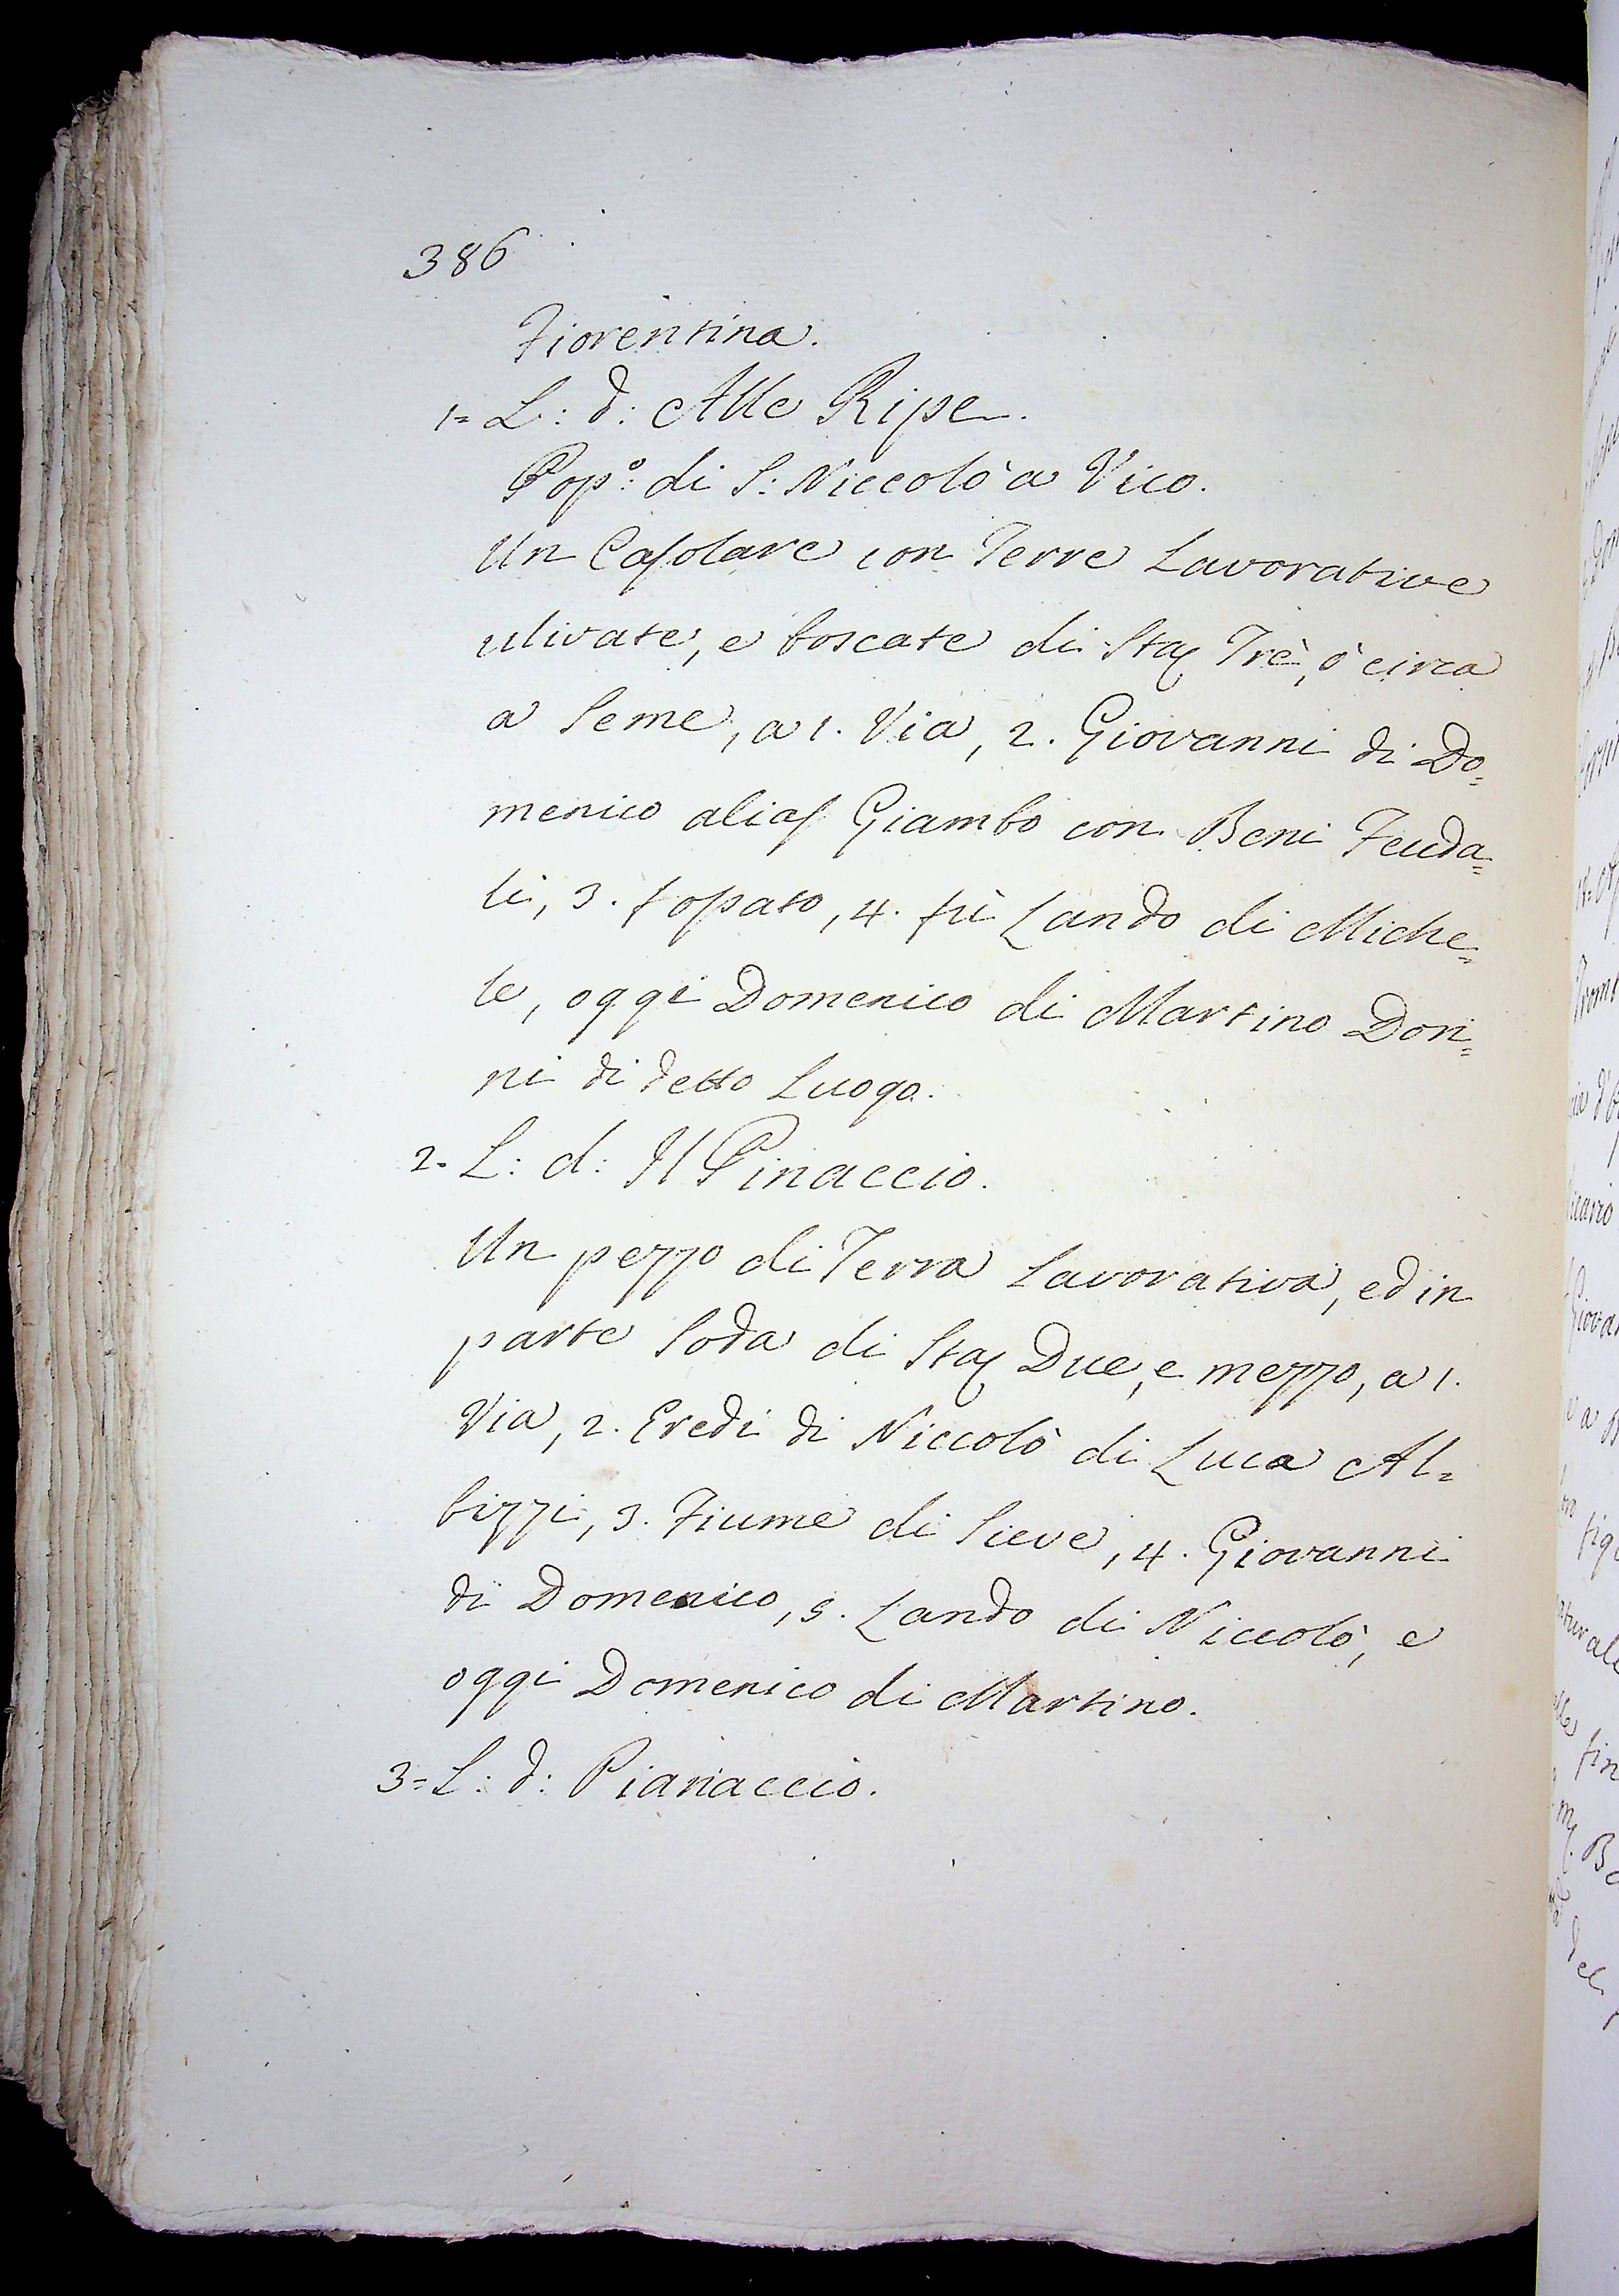 386
Fiorentina.
1= L: d: Alle Ripe.
Pop.º di S: Niccolò a Vico.
Un Casolare con Terre Lavorative
ulivate, e boscate di Sta; Trè, ò circa
a Seme, a 1. Via, 2. Giovanni di Do=
menico alias Giambo con Beni Feuda=
li, 3. fossato, 4. fù Lando di Miche=
le, oggi Domenico di Martino Don=
ni di detto Luogo.
2= L: d: Il Pinaccio.
Un pezzo di Terra Lavorativa, ed in
parte Soda di Sta; Due, e mezzo, a 1.
Via, 2. Eredi di Niccolò di Luca Al=
bizzi, 3. Fiume di Sieve, 4. Giovanni
di Domenico, 5. Lando di Niccolò, e
oggi Domenico di Martino.
3= L: d: Pianaccio.